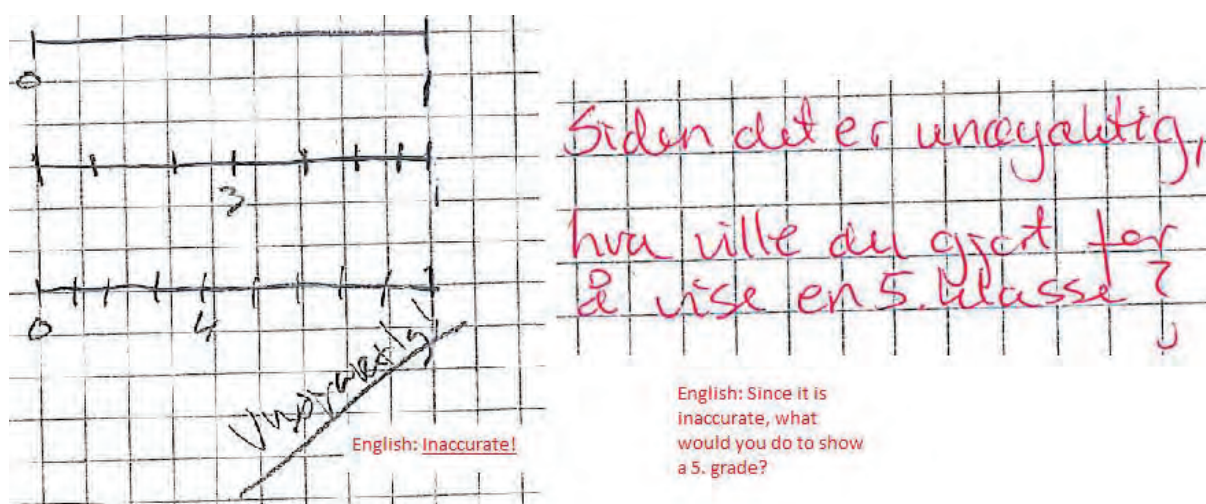 0 1
3 1
0 4 1
Unøyaktig!
English: Inaccurate!
Siden det er unøyaktig,
hva ville du gjort for
å vise en 5. klasse?
English: Since it is
inaccurate, what
would you do to show
a 5. grade?